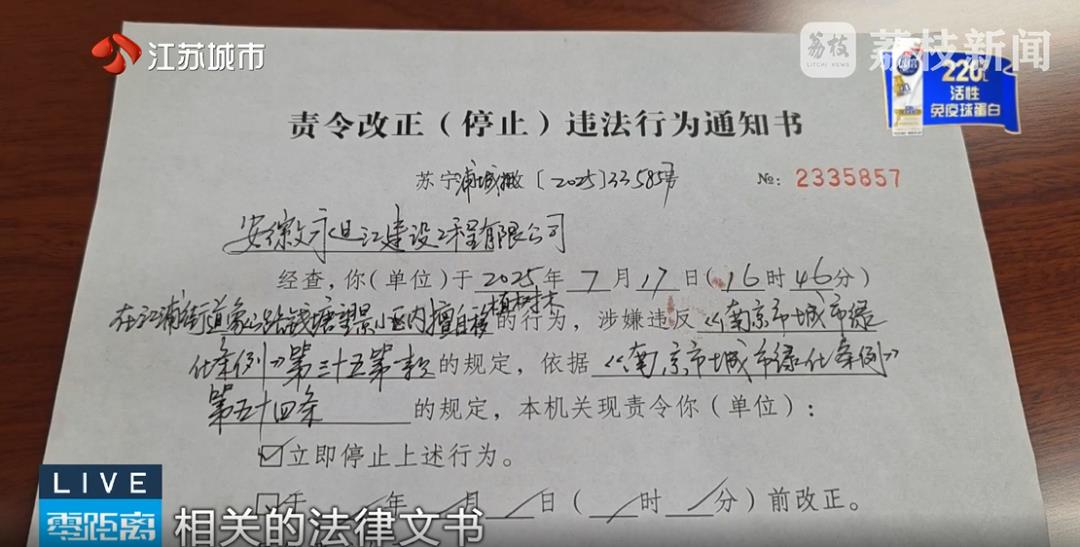 江苏城市
荔枝
LITCHI NEWS
荔枝新闻
220
活性
免疫球蛋白
责令改正（停止）违法行为通知书
苏宁浦城撤〔2025〕33585号
№: 2335857
安徽永迎江建设工程有限公司
经查，你（单位）于2025年7月17日（16时46分）
植树木
在江浦街道象山路钱塘望景小区内擅自移的行为，涉嫌违反《南京市城市绿
化条例》第三十五第款的规定，依据《南京市城市绿化条例》
第五十四条的规定，本机关现责令你（单位）：
☑立即停止上述行为。
□于 年 月 日（ 时 分）前改正。
LIVE
零距离
相关的法律文书